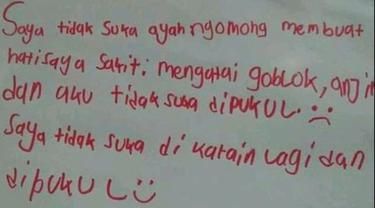 Saya tidak suka ayah ngomong membuat
hati saya sakit: mengatai goblok, anjin
dan aku tidak suka dipukul. :(
Saya tidak suka di katain lagi dan
dipukul :)